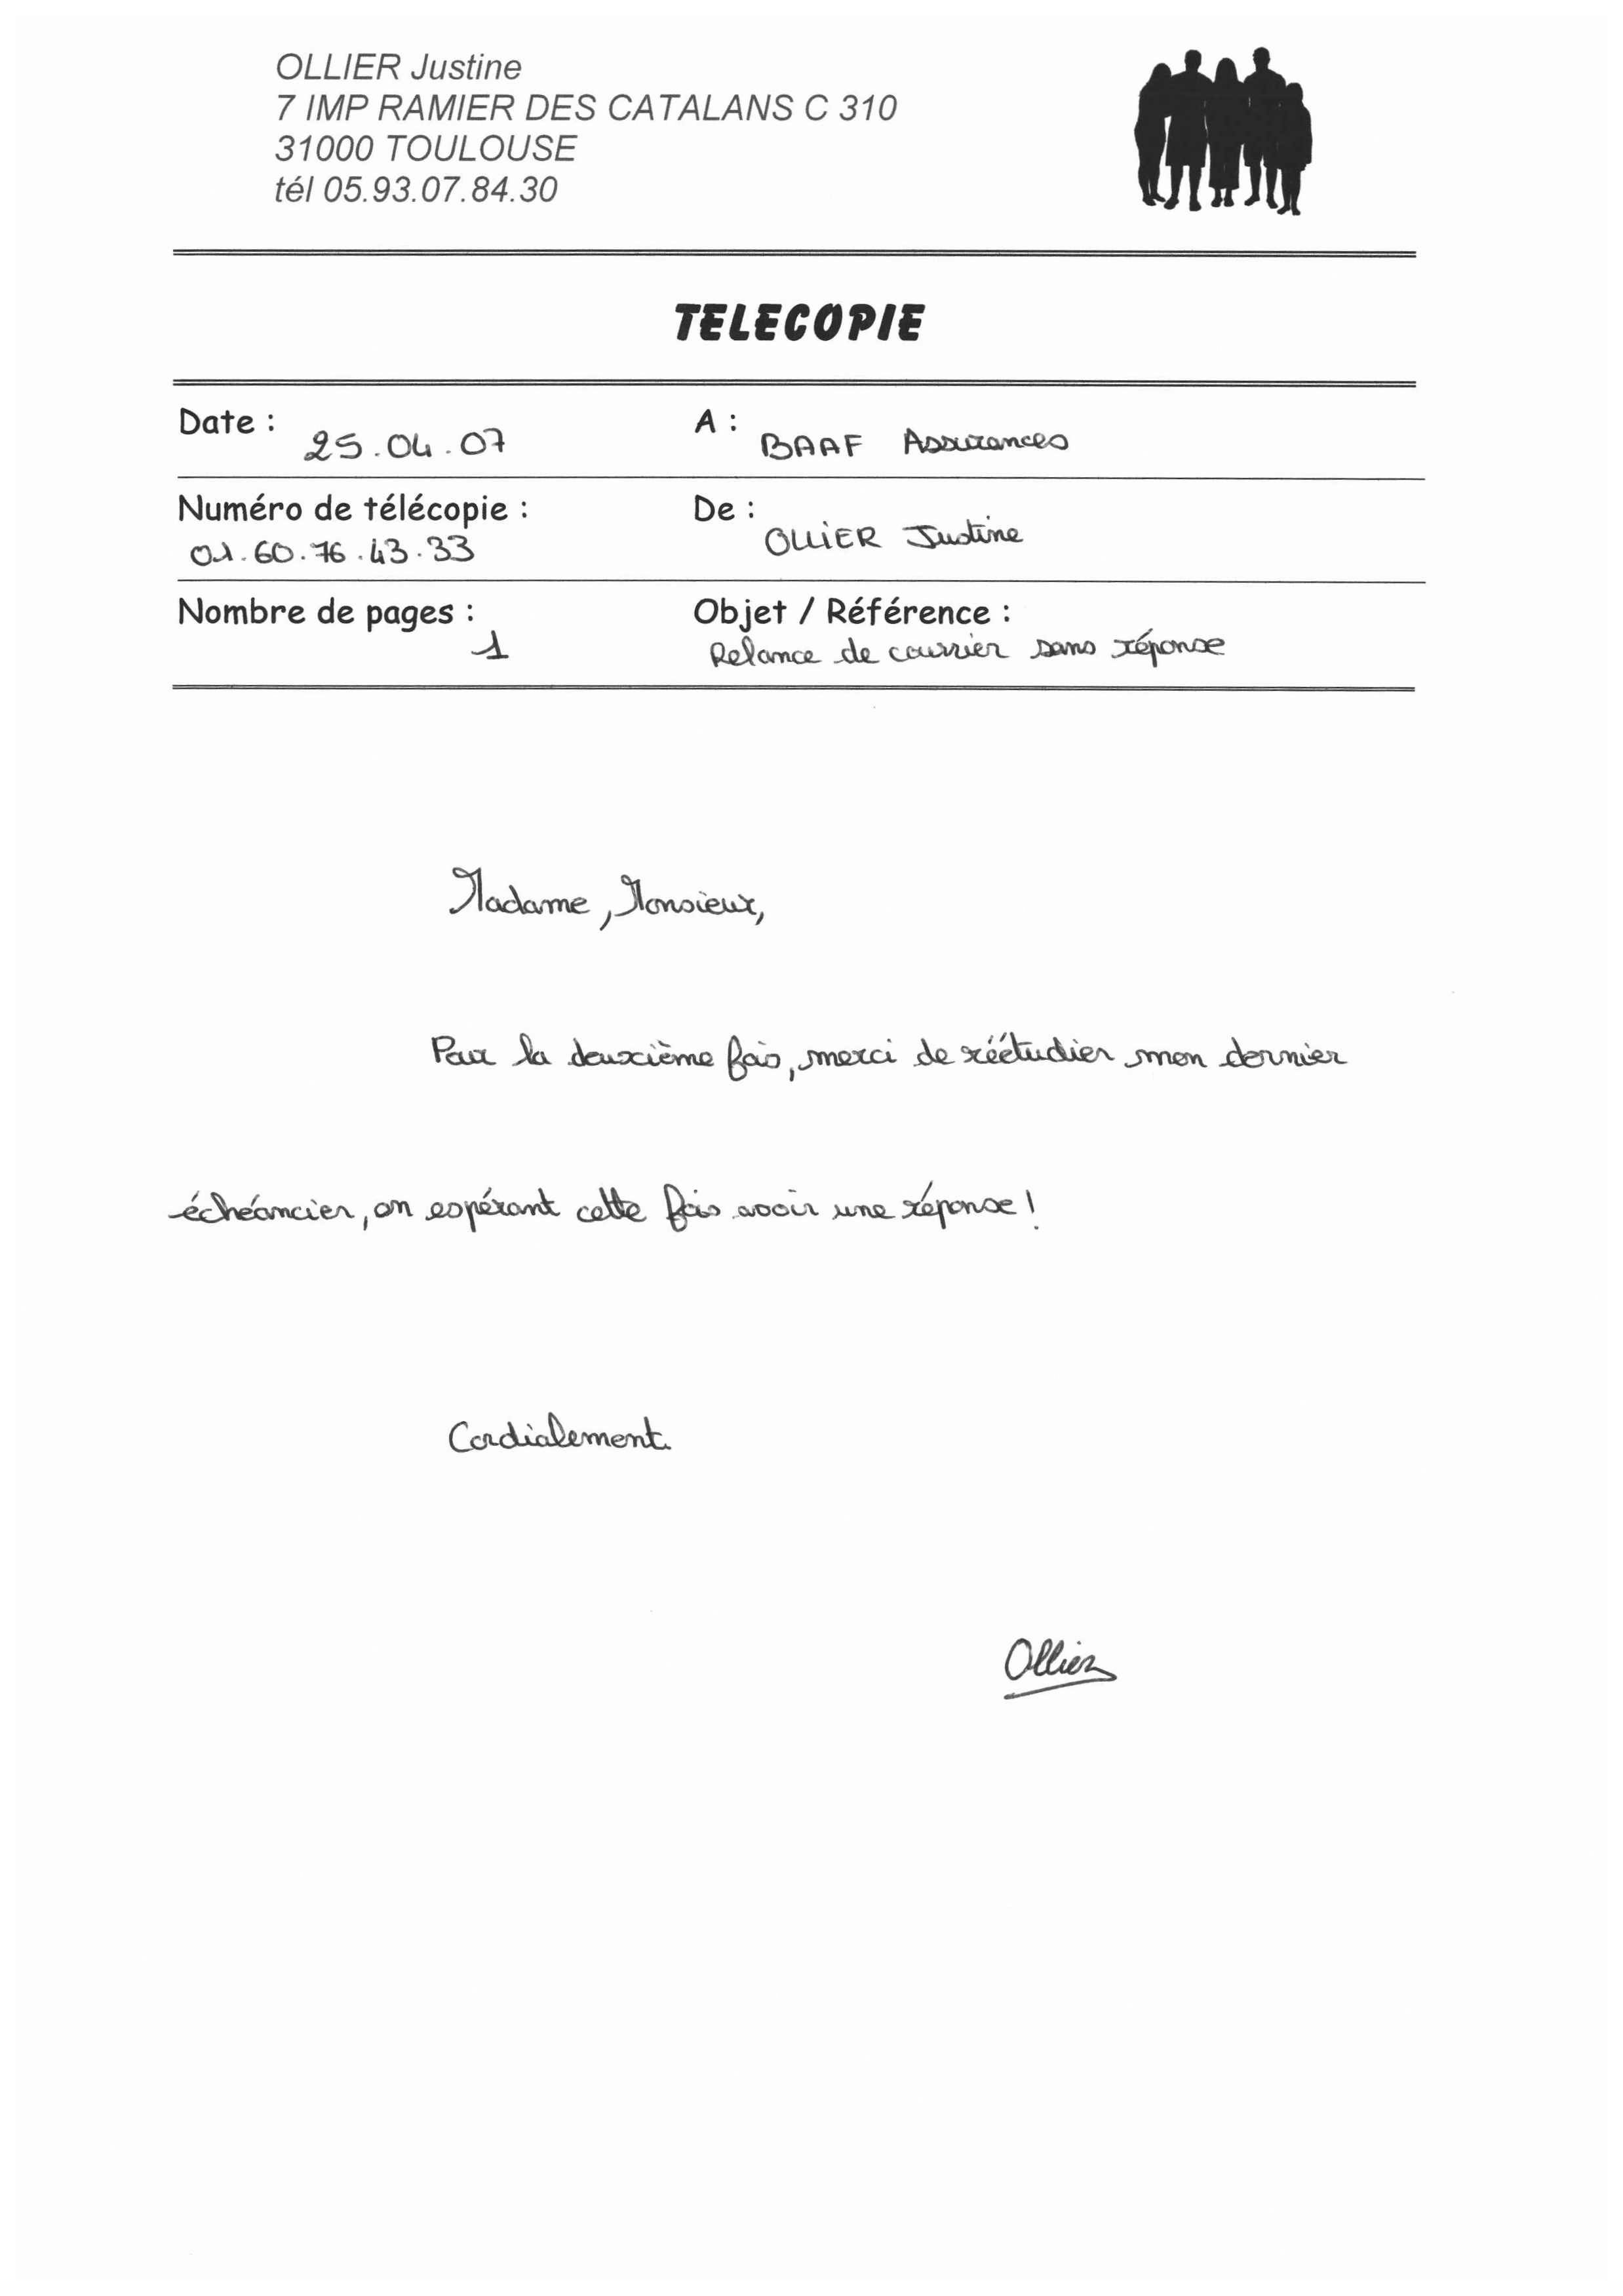 OLLIER Justine
7 IMP RAMIER DES CATALANS C 310
31000 TOULOUSE
tél 05.93.07.84.30
TELECOPIE
Date : 25.04.07 A : BAAF Assurances
Numéro de télécopie : De : OLLIER Justine
01.60.76.43.33
Nombre de pages : 1 Objet / Référence :
Relance de courrier sans réponse
Madame, Monsieur,
Pour la deuxième fois, merci de réétudier mon dernier
échéancier, en espérant cette fois avoir une réponse !
Cordialement.
Ollier